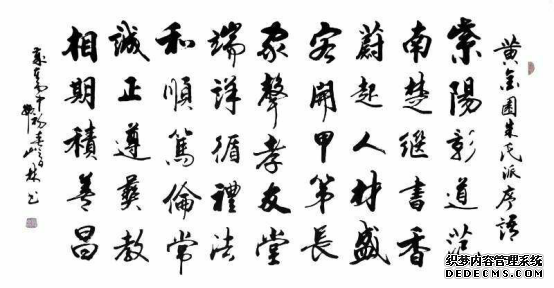 黄金園朱氏派序語
紫陽彰道范
南楚繼書香
蔚起人材盛
宏開甲第長
家聲孝友堂
端詳循禮法
和順篤倫常
誠正遵彝教
相期積善昌
织梦内容管理系统
DEDECMS.COM